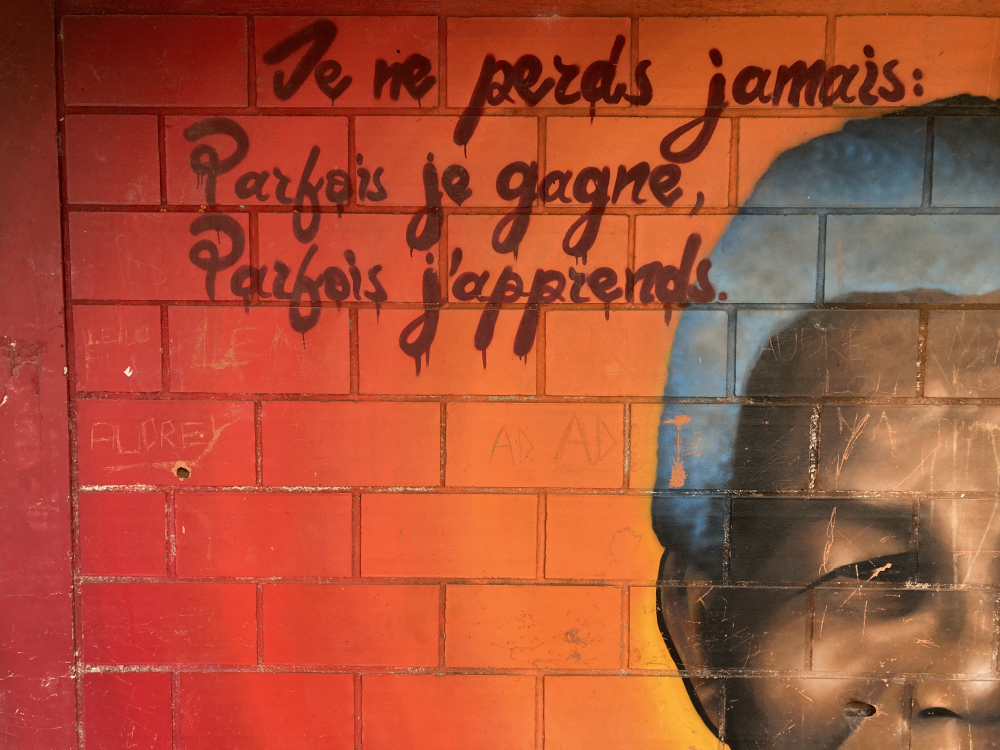 Je ne perds jamais:
Parfois je gagne,
Parfois j'apprends.
AUDREY